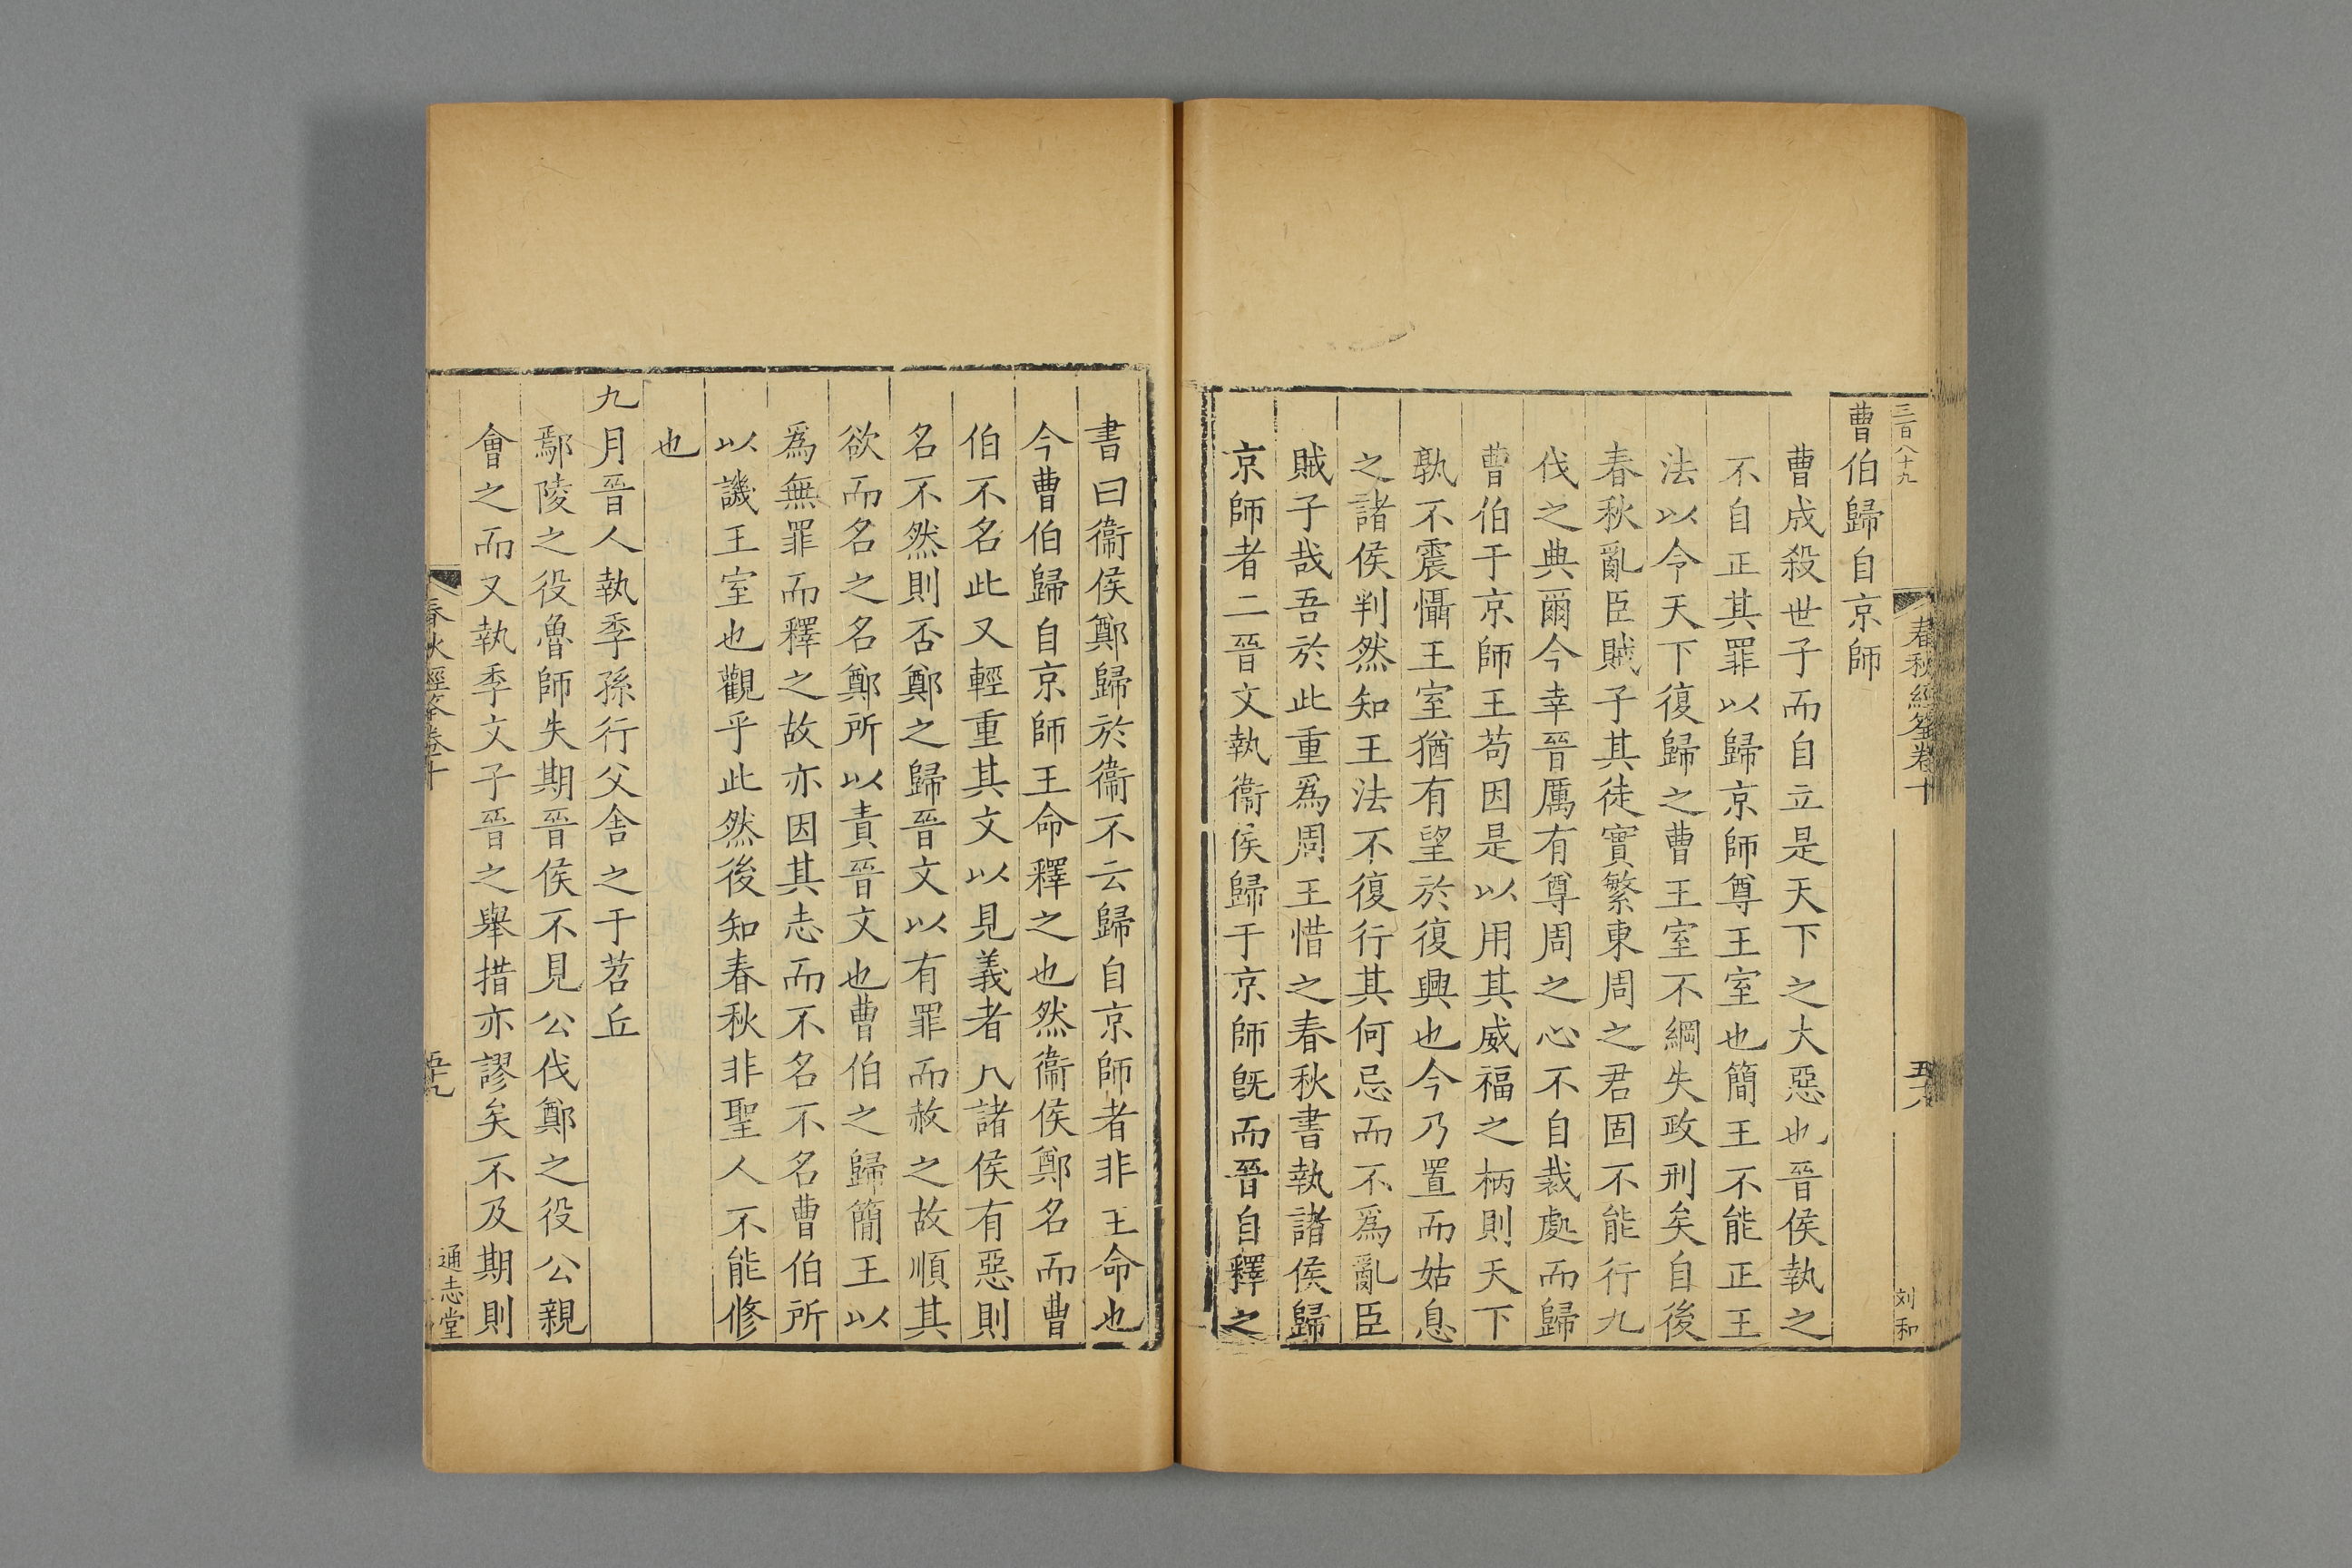 三百八十九
春秋經筌卷十
五八
刘和
曹伯歸自京師
曹成殺世子而自立是天下之大惡也晉侯執之
不自正其罪以歸京師尊王室也簡王不能正王
法以令天下復歸之曹王室不綱失政刑矣自後
春秋亂臣賊子其徒實繁東周之君固不能行九
伐之典爾今幸晉厲有尊周之心不自裁處而歸
曹伯于京師王苟因是以用其威福之柄則天下
孰不震懾王室猶有望於復興也今乃置而姑息
之諸侯判然知王法不復行其何忌而不爲亂臣
賊子哉吾於此重爲周王惜之春秋書執諸侯歸
京師者二晉文執衞侯歸于京師旣而晉自釋之
書曰衞侯鄭歸於衞不云歸自京師者非王命也
今曹伯歸自京師王命釋之也然衞侯鄭名而曹
伯不名此又輕重其文以見義者凡諸侯有惡則
名不然則否鄭之歸晉文以有罪而赦之故順其
欲而名之名鄭所以責晉文也曹伯之歸簡王以
爲無罪而釋之故亦因其志而不名不名曹伯所
以譏王室也觀乎此然後知春秋非聖人不能修
也
九月晉人執季孫行父舍之于苕丘
鄢陵之役魯師失期晉侯不見公伐鄭之役公親
會之而又執季文子晉之舉措亦謬矣不及期則
春秋經筌卷十
五十九
通志堂